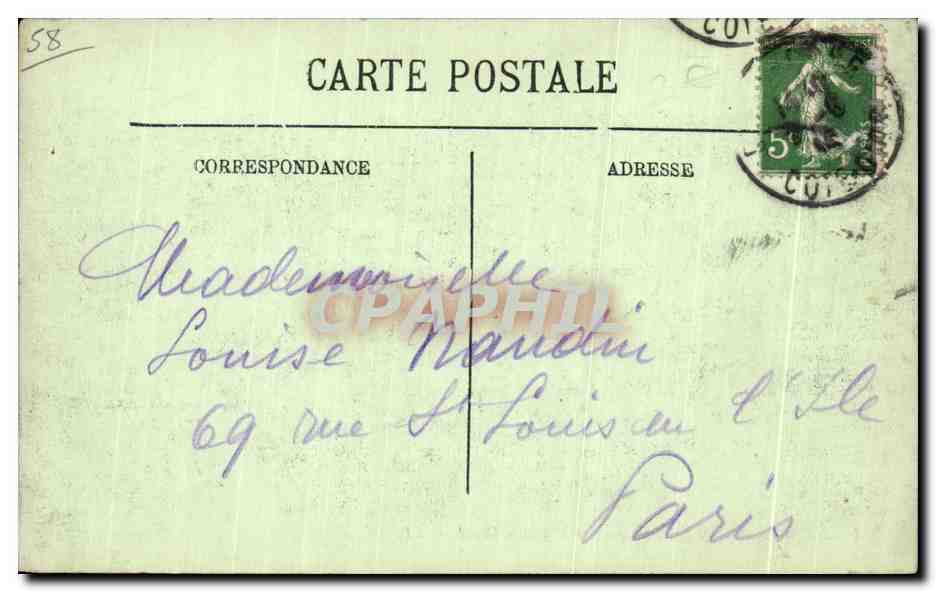 58
CARTE POSTALE
CORRESPONDANCE
ADRESSE
5
Mademoiselle
CPAPHIL
Louise Naudin
69 rue St Louis en l'Ile
Paris